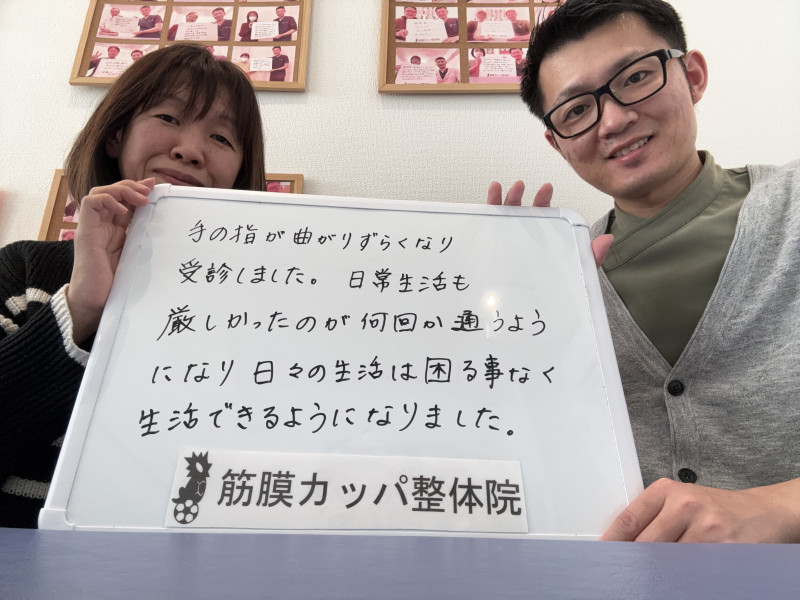 手の指が曲がりずらくなり
受診しました。 日常生活も
厳しかったのが何回か通うよう
になり日々の生活は困る事なく
生活できるようになりました。
筋膜カッパ整体院